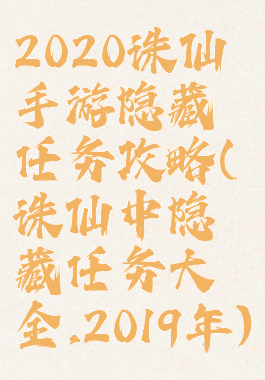 2020诛仙
手游隐藏
任务攻略(
诛仙中隐
藏任务大
全.2019年)